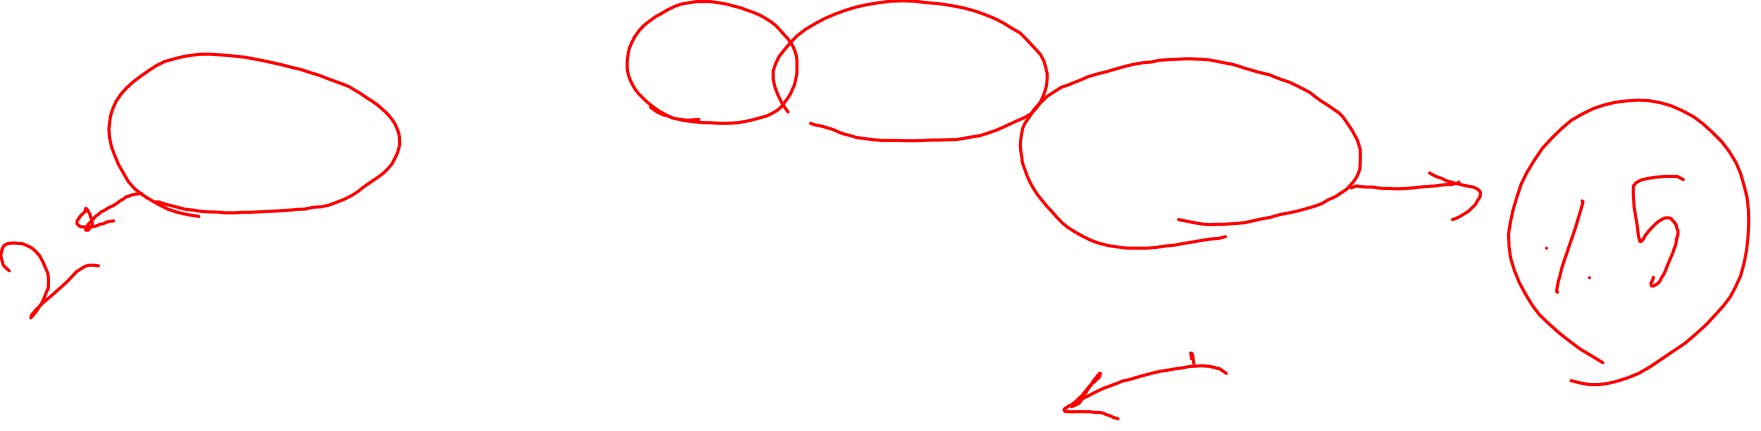 2
1.5